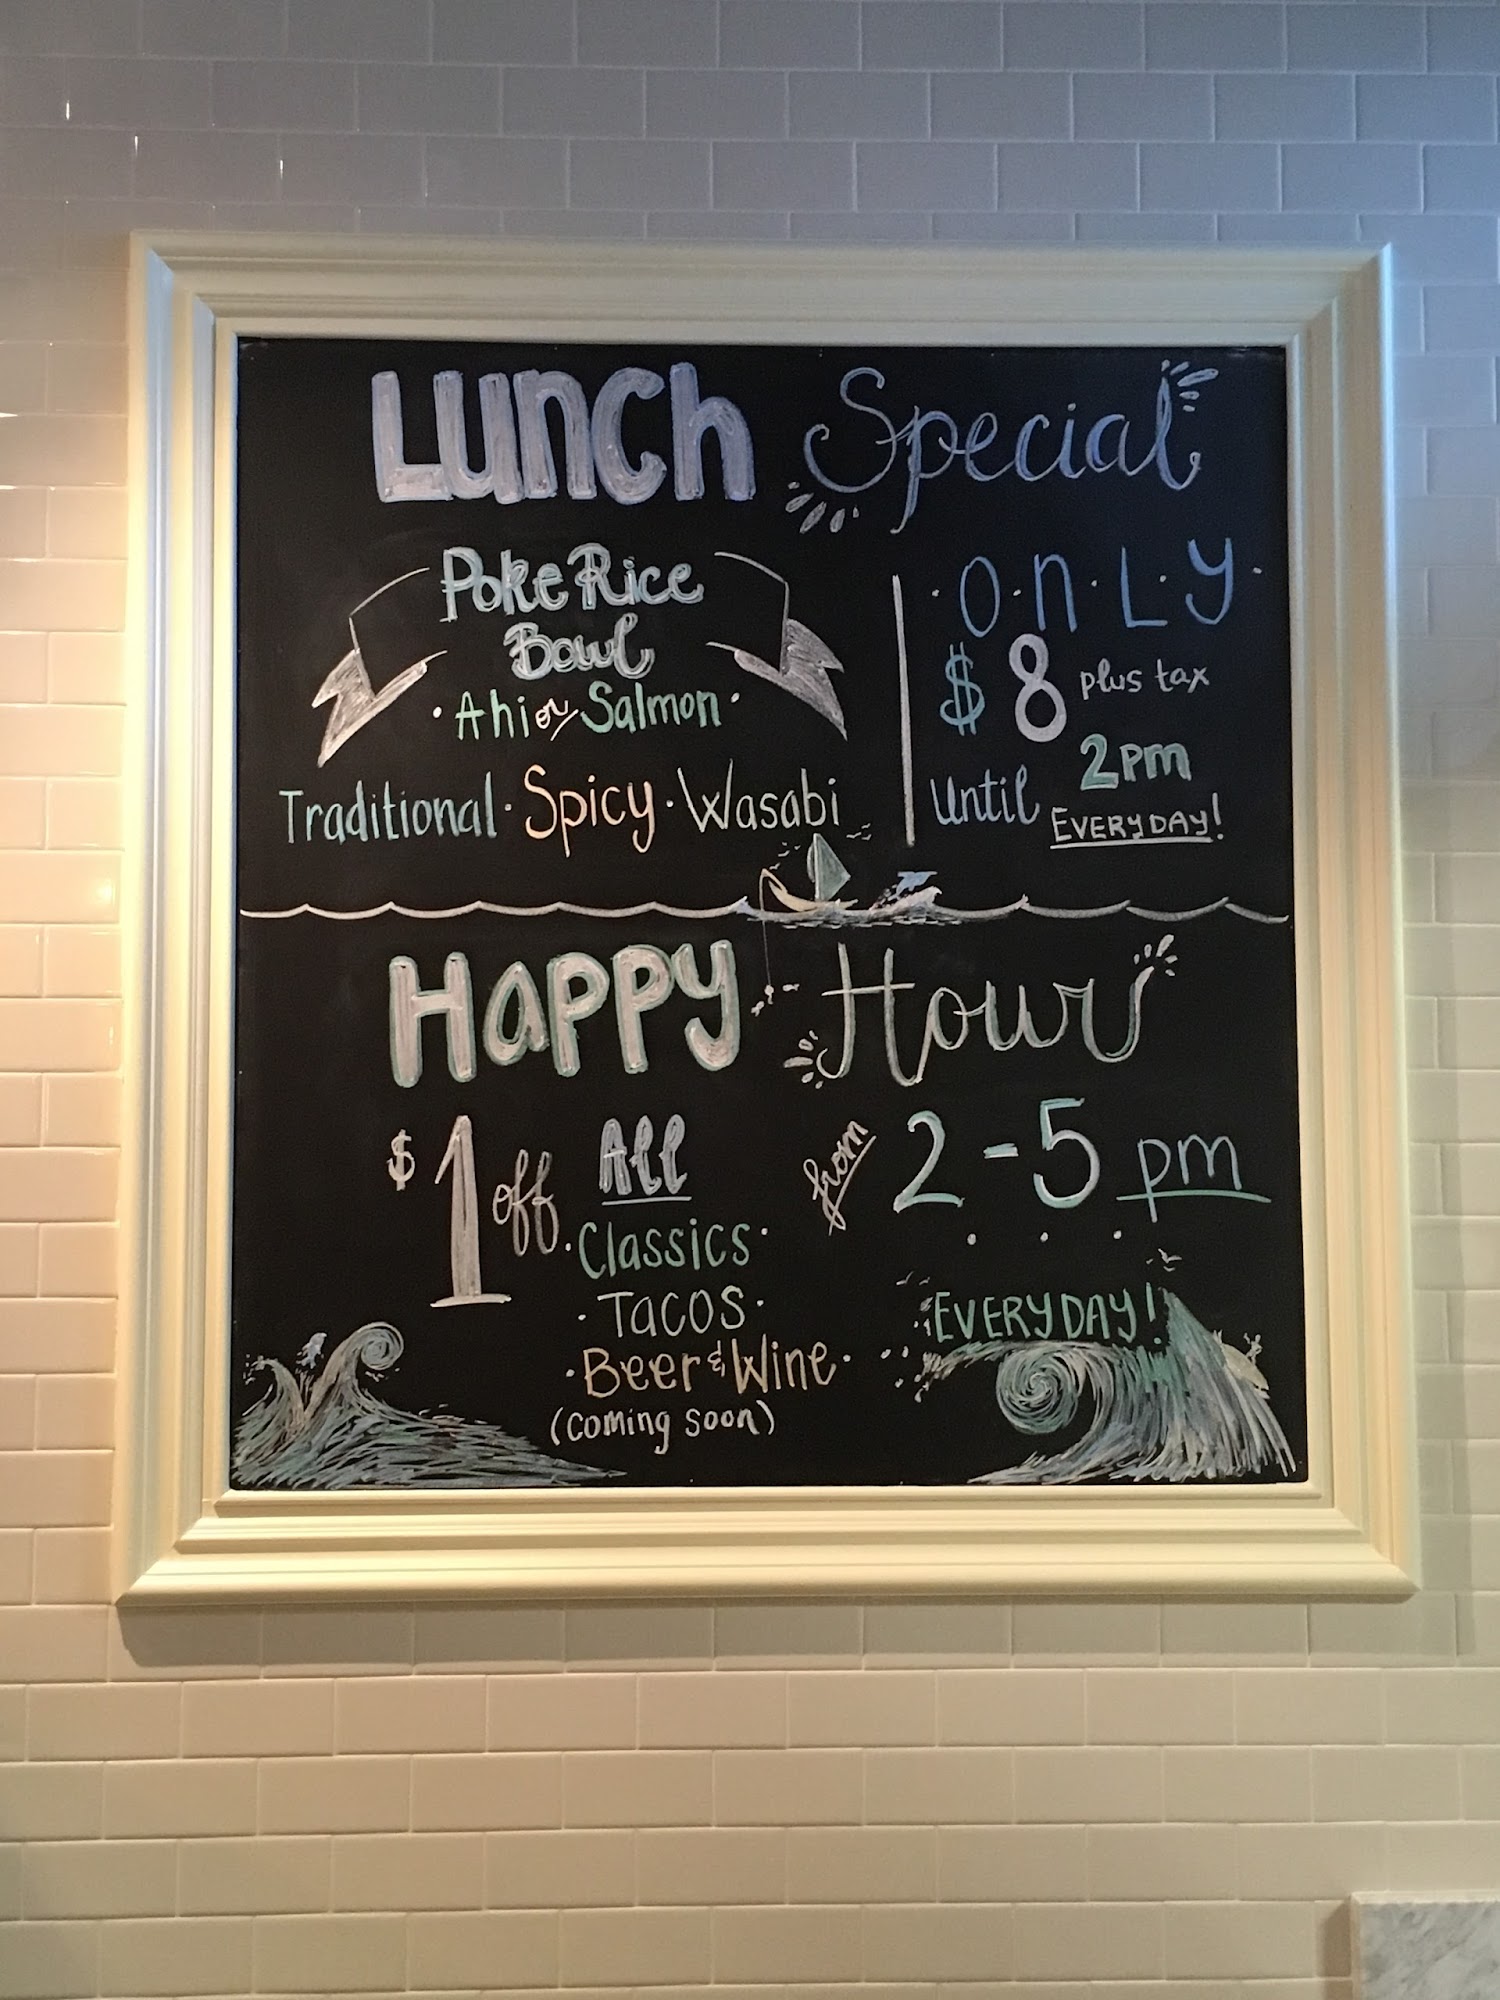 Lunch Special
Poke Rice
Bowl
· Ahi or Salmon ·
Traditional · Spicy · Wasabi
· O · n · L · y ·
$8 plus tax
Until 2pm
EVERYDAY!
Happy Hour
$1 off All
· Classics ·
· TACOS ·
· Beer & Wine ·
(coming soon)
from 2-5 pm
EVERYDAY!